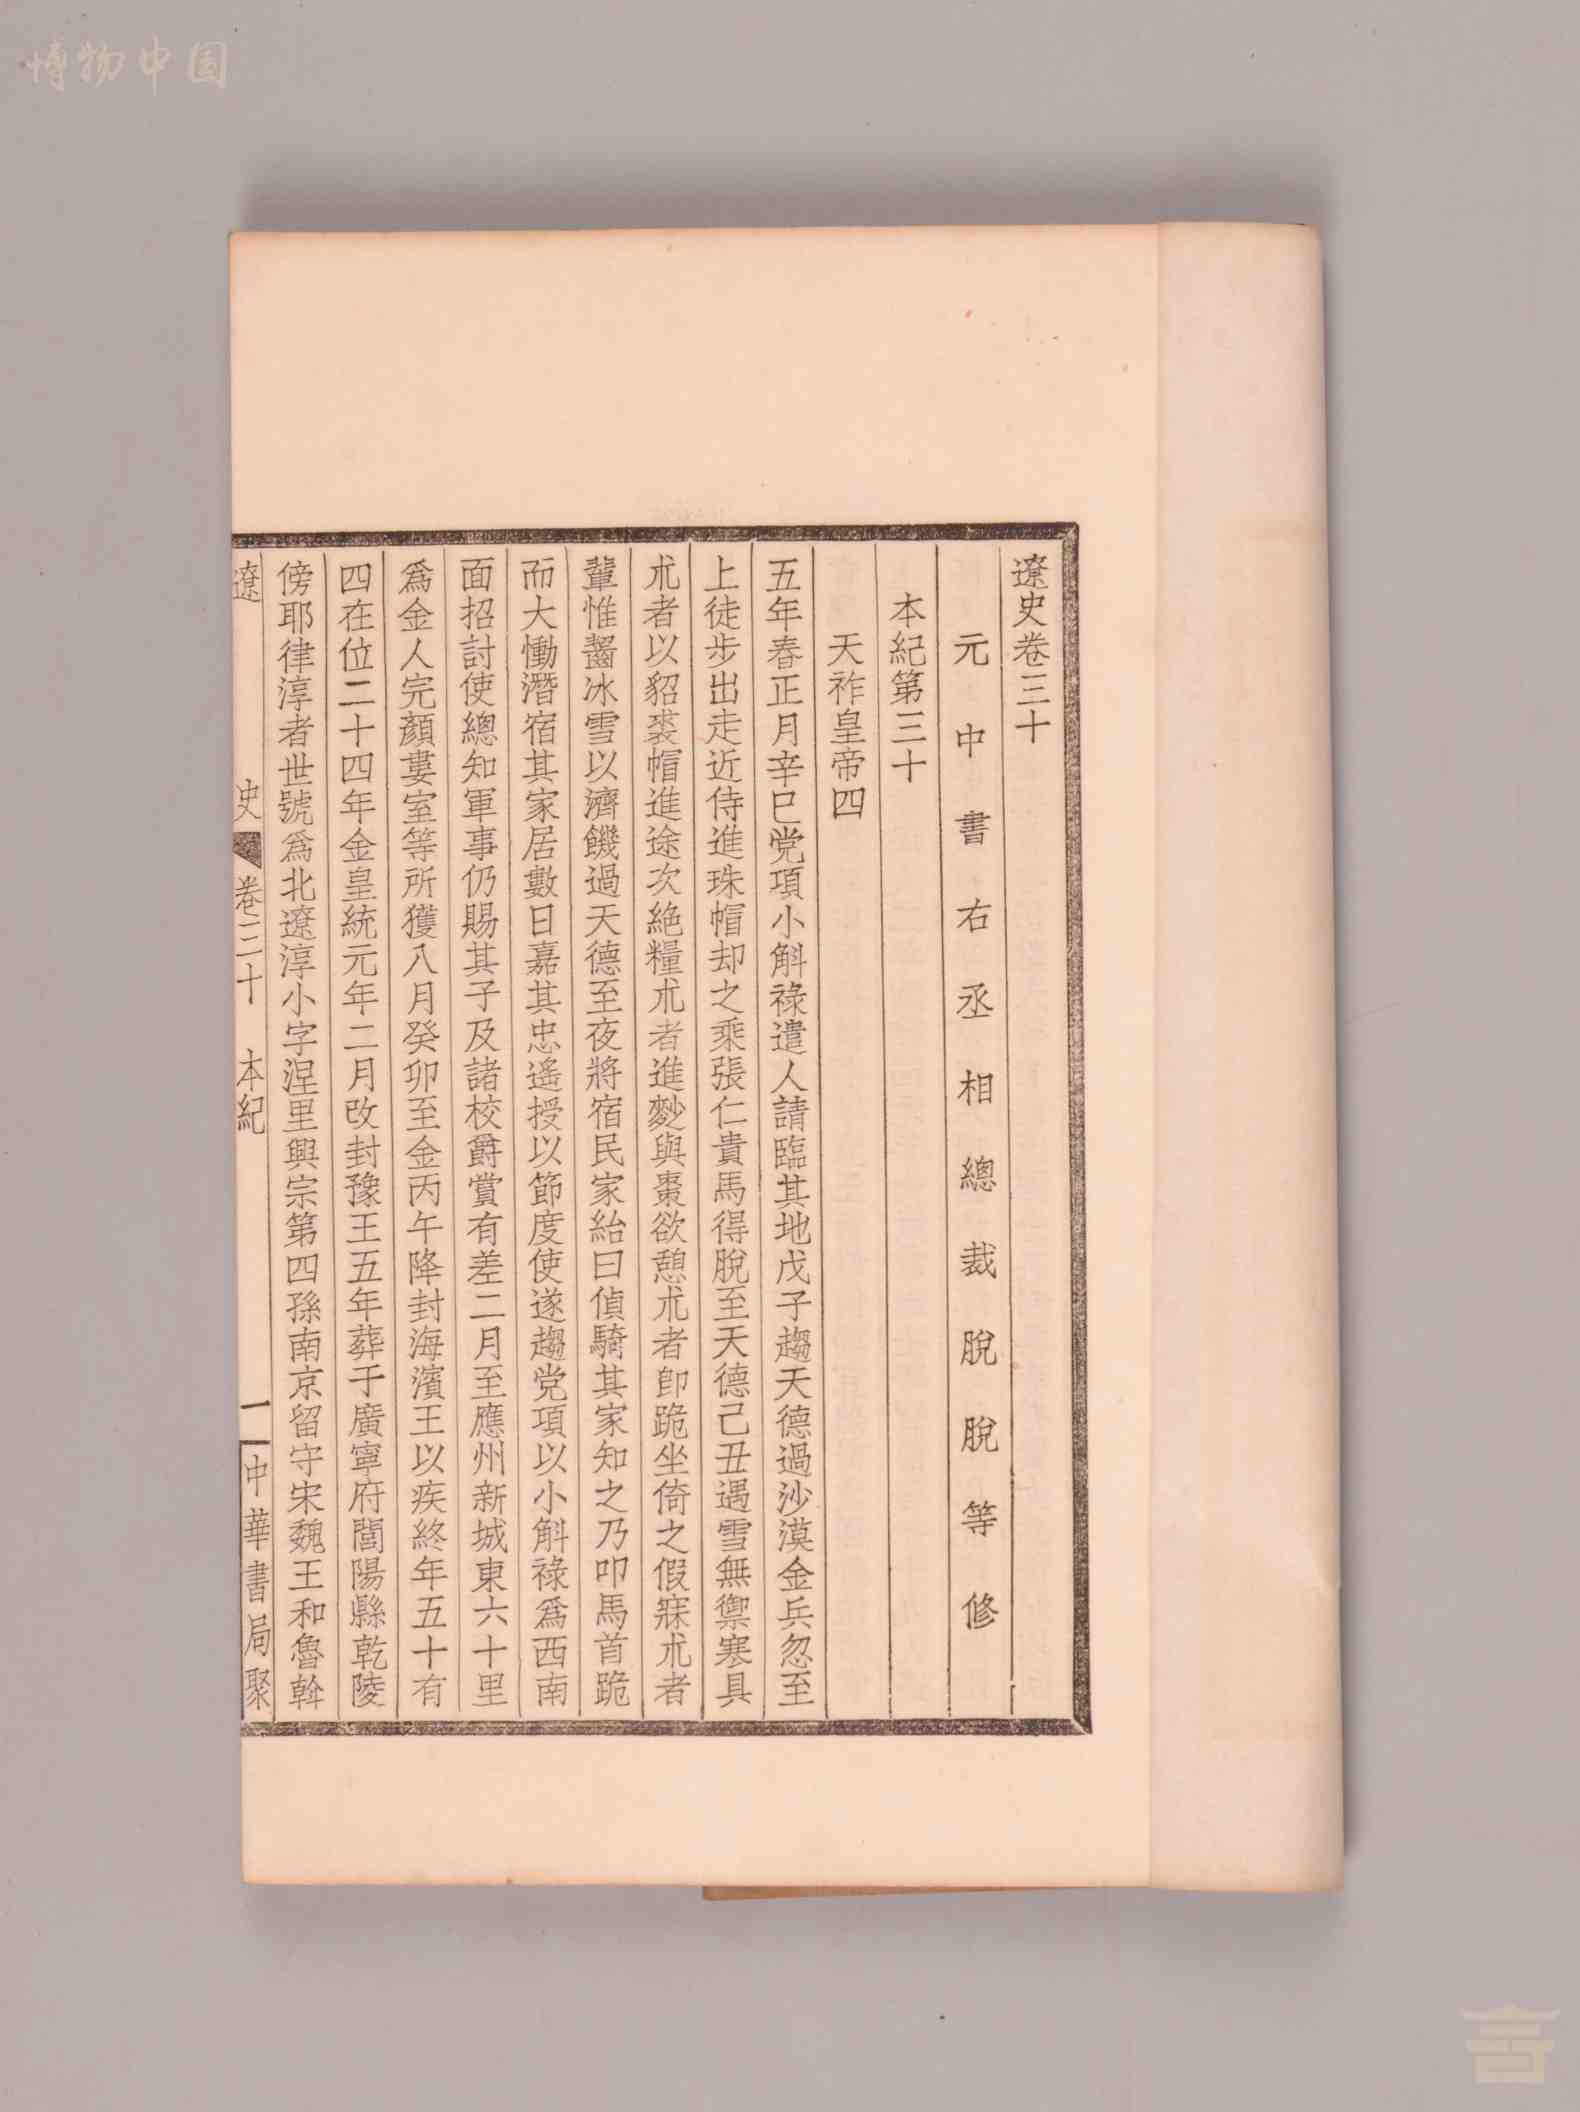 博物中国
遼史卷三十
元中書右丞相總裁脫脫等修
本紀第三十
天祚皇帝四
五年春正月辛巳党項小斛祿遣人請臨其地戊子趨天德過沙漠金兵忽至
上徒步出走近侍進珠帽却之乘張仁貴馬得脫至天德己丑遇雪無禦寒具
朮者以貂裘帽進途次絶糧朮者進麨與棗欲憩朮者卽跪坐倚之假寐朮者
輩惟齧冰雪以濟饑過天德至夜將宿民家紿曰偵騎其家知之乃叩馬首跪
而大慟潛宿其家居數日嘉其忠遙授以節度使遂趨党項以小斛祿爲西南
面招討使總知軍事仍賜其子及諸校爵賞有差二月至應州新城東六十里
爲金人完顏婁室等所獲八月癸卯至金丙午降封海濱王以疾終年五十有
四在位二十四年金皇統元年二月改封豫王五年葬于廣寧府閭陽縣乾陵
傍耶律淳者世號爲北遼淳小字涅里興宗第四孫南京留守宋魏王和魯斡
遼史 卷三十 本紀 一 中華書局聚